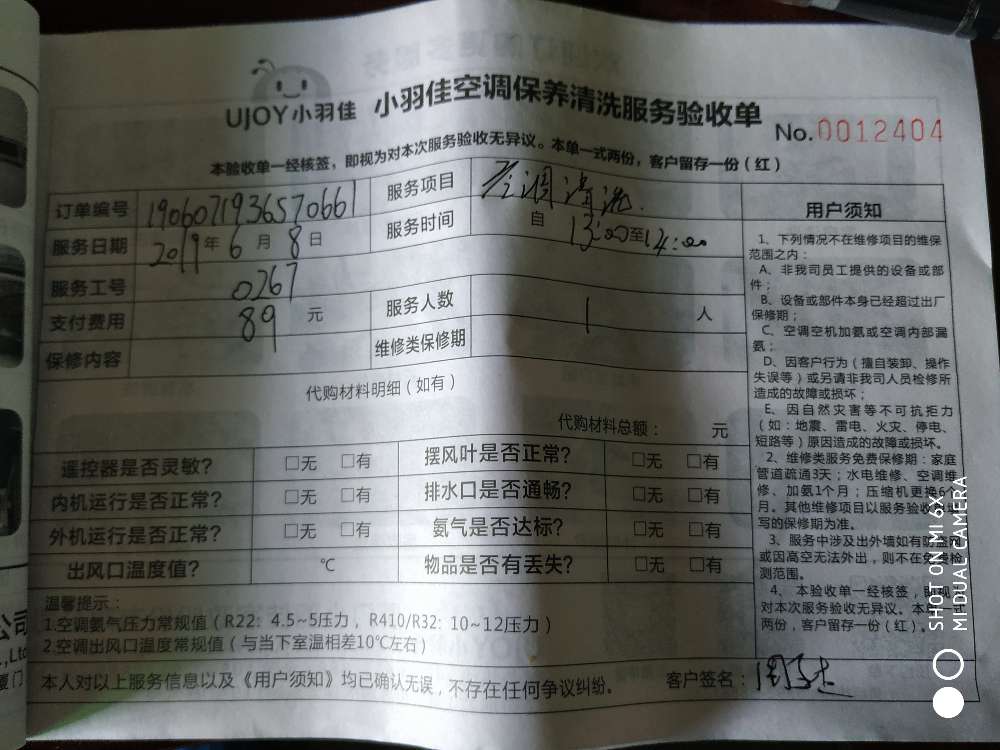 UJOY小羽佳 小羽佳空调保养清洗服务验收单
No.0012404
本验收单一经核签，即视为对本次服务验收无异议。本单一式两份，客户留存一份（红）
订单编号 1906071936570661 服务项目 空调清洗
服务日期 2019年6月8日 服务时间 自13:00至14:00
服务工号 0267
支付费用 89 元 服务人数 1 人
保修内容 维修类保修期
代购材料明细（如有）
代购材料总额： 元
遥控器是否灵敏? □无 □有 摆风叶是否正常? □无 □有
内机运行是否正常? □无 □有 排水口是否通畅? □无 □有
外机运行是否正常? □无 □有 氨气是否达标? □无 □有
出风口温度值? ℃ 物品是否有丢失? □无 □有
温馨提示：
1.空调氨气压力常规值（R22: 4.5~5压力，R410/R32: 10~12压力）
2.空调出风口温度常规值（与当下室温相差10℃左右）
本人对以上服务信息以及《用户须知》均已确认无误，不存在任何争议纠纷。 客户签名：
用户须知
1、下列情况不在维修项目的维保
范围之内：
A、非我司员工提供的设备或部
件；
B、设备或部件本身已经超过出厂
保修期；
C、空调空机加氨或空调内部漏
氨；
D、因客户行为（擅自装卸、操作
失误等）或另请非我司人员检修所
造成的故障或损坏；
E、因自然灾害等不可抗拒力
（如：地震、雷电、火灾、停电、
短路等）原因造成的故障或损坏。
2、维修类服务免费保修期：家庭
管道疏通3天；水电维修、空调维
修、加氨1个月；压缩机更换6个
月。其他维修项目以服务验收单填
写的保修期为准。
3、服务中涉及出外墙如有
或因高空无法外出，则不在免费检
测范围。
4、本验收单一经核签，即视
对本次服务验收无异议。本单一式
两份，客户留存一份（红）。
SHOT ON MI 6X
MI DUAL CAMERA
公司
.,Ltd
厦门